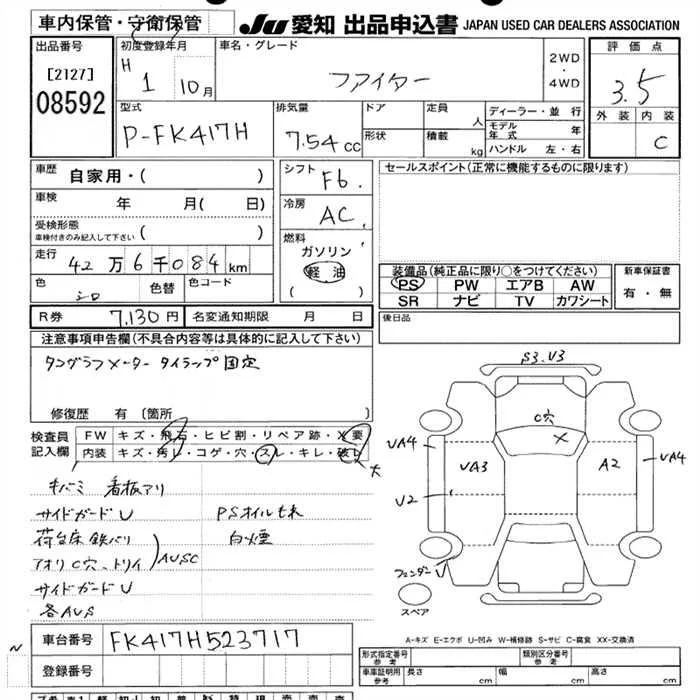 車内保管・守衛保管
JU 愛知 出品申込書 JAPAN USED CAR DEALERS ASSOCIATION
出品番号
[2127]
08592
初度登録年月
H 1 10月
車名・グレード
ファイター
2WD
・
4WD
評価点
3.5
外装 内装
C
型式
P-FK417H
排気量
7.54 cc
ドア
形状
定員
人
積載
kg
ディーラー・並行
モデル年式 年
ハンドル 左・右
車歴
自家用・( )
車検
年 月( 日)
受検形態
車検付きのみ記入して下さい ( )
走行
42万6千084km
色
シロ
色替
色コード
シフト
F6
冷房
AC
燃料
ガソリン
軽油
( )
セールスポイント(正常に機能するものに限ります)
装備品(純正品に限り○をつけてください)
PS PW エアB AW
SR ナビ TV カワシート
新車保証書
有・無
R券 7,130円
名変通知期限 月 日
後日品
注意事項申告欄(不具合内容等は具体的に記入して下さい)
タングラフメーター タイラップ固定
修復歴 有 (箇所
検査員
記入欄
FW キズ・飛石・ヒビ割・リペア跡・X要
内装 キズ・汚レ・コゲ・穴・スレ・キレ・破レ
大
キバミ 看板アリ
サイドガードU PSオイルモレ
荷台床鉄バリ 白煙
アオリC穴、トリイ AUSC
サイドガードU
各AUS
S3.U3
C穴
X
UA4
UA3
A2
UA4
U2
フェンダーU
スペア
A-キズ E-エクボ U-凹み W-補修跡 S-サビ C-腐食 XX-交換済
車台番号 FK417H523717
登録番号
形式指定番号
参考
類別区分番号
参考
車両寸法
参考
長さ cm
幅 cm
高さ cm